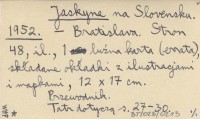 Jaskyne na Slovensku.
1952. Bratislava. Stron
48, il., 1 luźna karta (errata),
składane okładki z ilustracjami
i mapkami, 12 x 17 cm.
Przewodnik.
Tatr dotyczą s. 27-30.